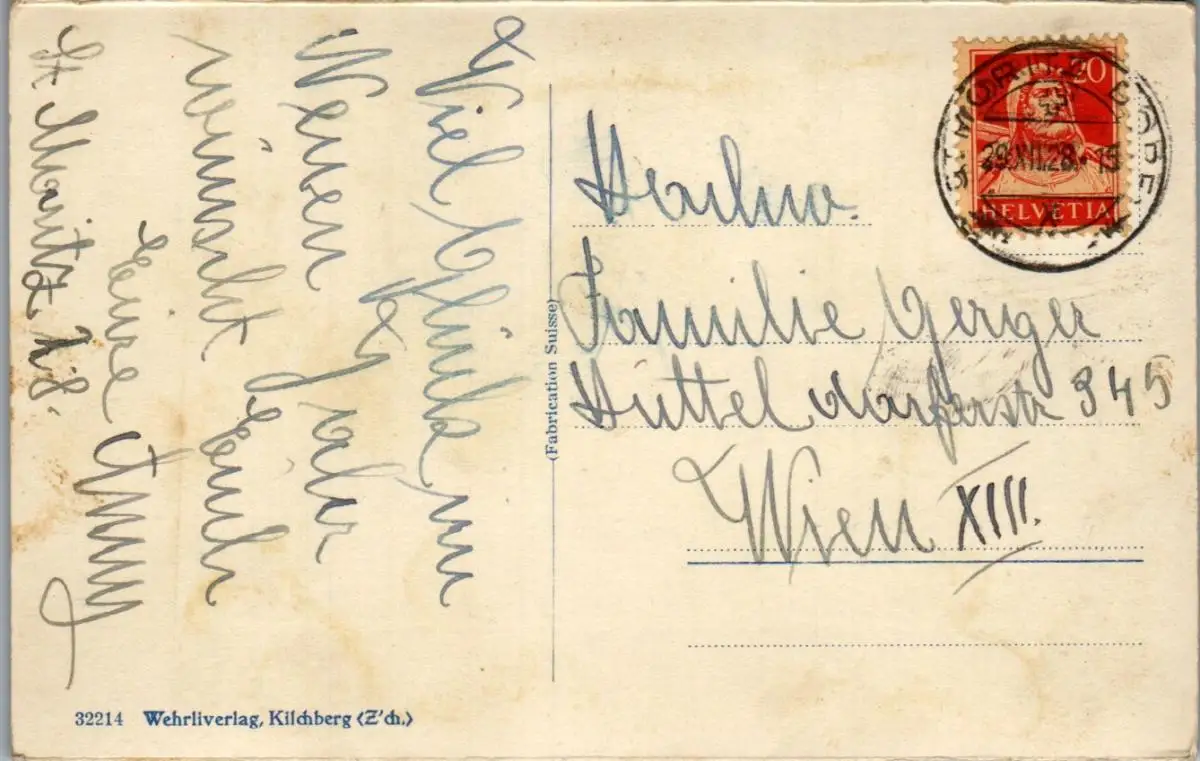 Viel Glück im
Neuen Jahr
wünscht Euch
Eure Anny
St Moritz 28.
Familie Gerger
Hütteldorferstr 345
Wien XIII.
(Fabrication Suisse)
20
HELVETIA
ST. MORITZ
29.XII.28. 15
32214 Wehrliverlag, Kilchberg (Z'ch.)